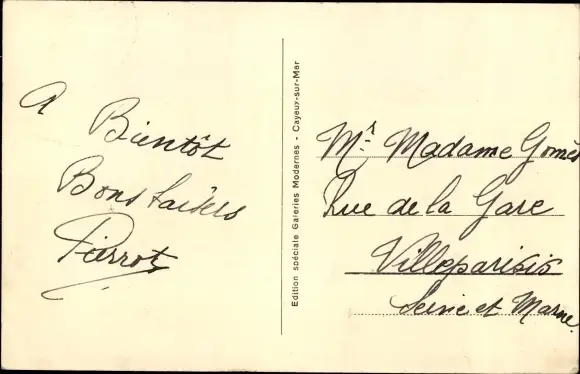 A Bientôt
Bons baisers
Pierrot
Edition spéciale Galeries Modernes - Cayeux-sur-Mer
Mr Madame Gomès
Rue de la Gare
Villeparisis
Seine et Marne.